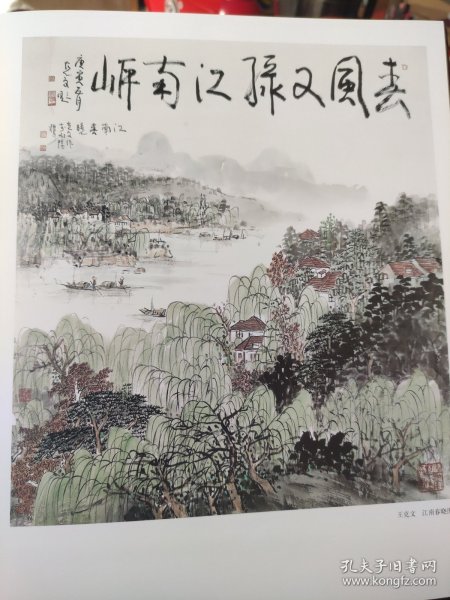 春風又綠江南岸
庚寅五月
克文題
江南春曉
王克文 江南春晓
孔夫子旧书网
www.kongfz.com